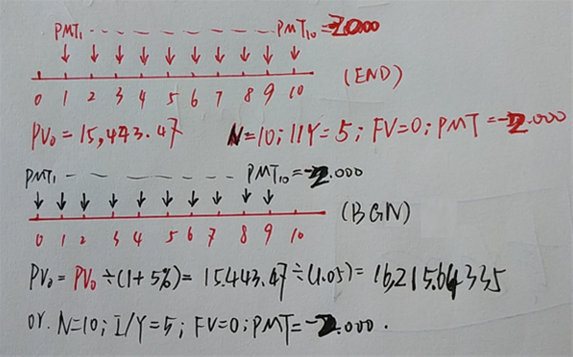 PMT₁ - - - - - - - - - PMT₁₀ = -2000
(END)
0 1 2 3 4 5 6 7 8 9 10
PV₀ = 15,443.47 N=10; I/Y=5; FV=0; PMT=-2.000
PMT₁ - - - - - - PMT₁₀ = -2.000
(BGN)
0 1 2 3 4 5 6 7 8 9 10
PV₀ = PV₀ ÷ (1+5%) = 15.443.47 ÷ (1.05) = 16,215.64335
or. N=10; I/Y=5; FV=0; PMT=-2.000.